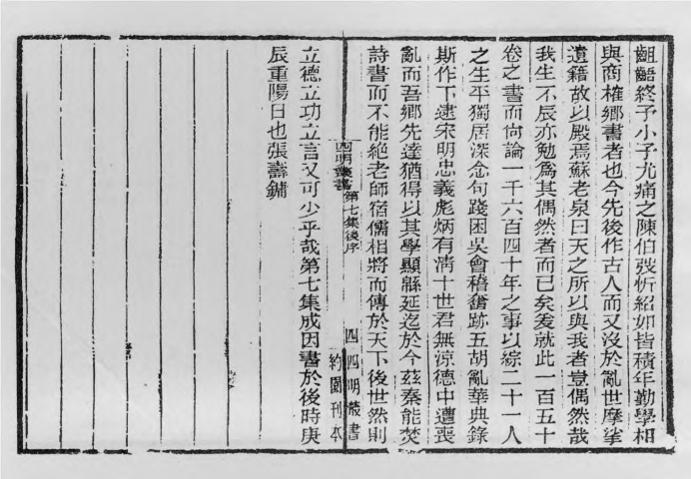 齟齬終予小子尤痛之陳伯弢忻紹如皆積年勤學相
與商榷鄉書者也今先後作古人而又沒於亂世摩挲
遺籍故以殿焉蘇老泉曰天之所以與我者豈偶然哉
我生不辰亦勉爲其偶然者而已矣爰就此一百五十
卷之書而尙論一千六百四十年之事以綜二十一人
之生平獨居深念句踐困吳會稽奮跡五胡亂華典錄
斯作下逮宋明忠義彪炳有淸十世君無涼德中遭喪
亂而吾鄉先達猶得以其學顯緜延迄於今茲秦能焚
詩書而不能絕老師宿儒相將而傳於天下後世然則
四明叢書
第七集後序
四
四明叢書
約園刊本
立德立功立言又可少乎哉第七集成因書於後時庚
辰重陽日也張壽鏞